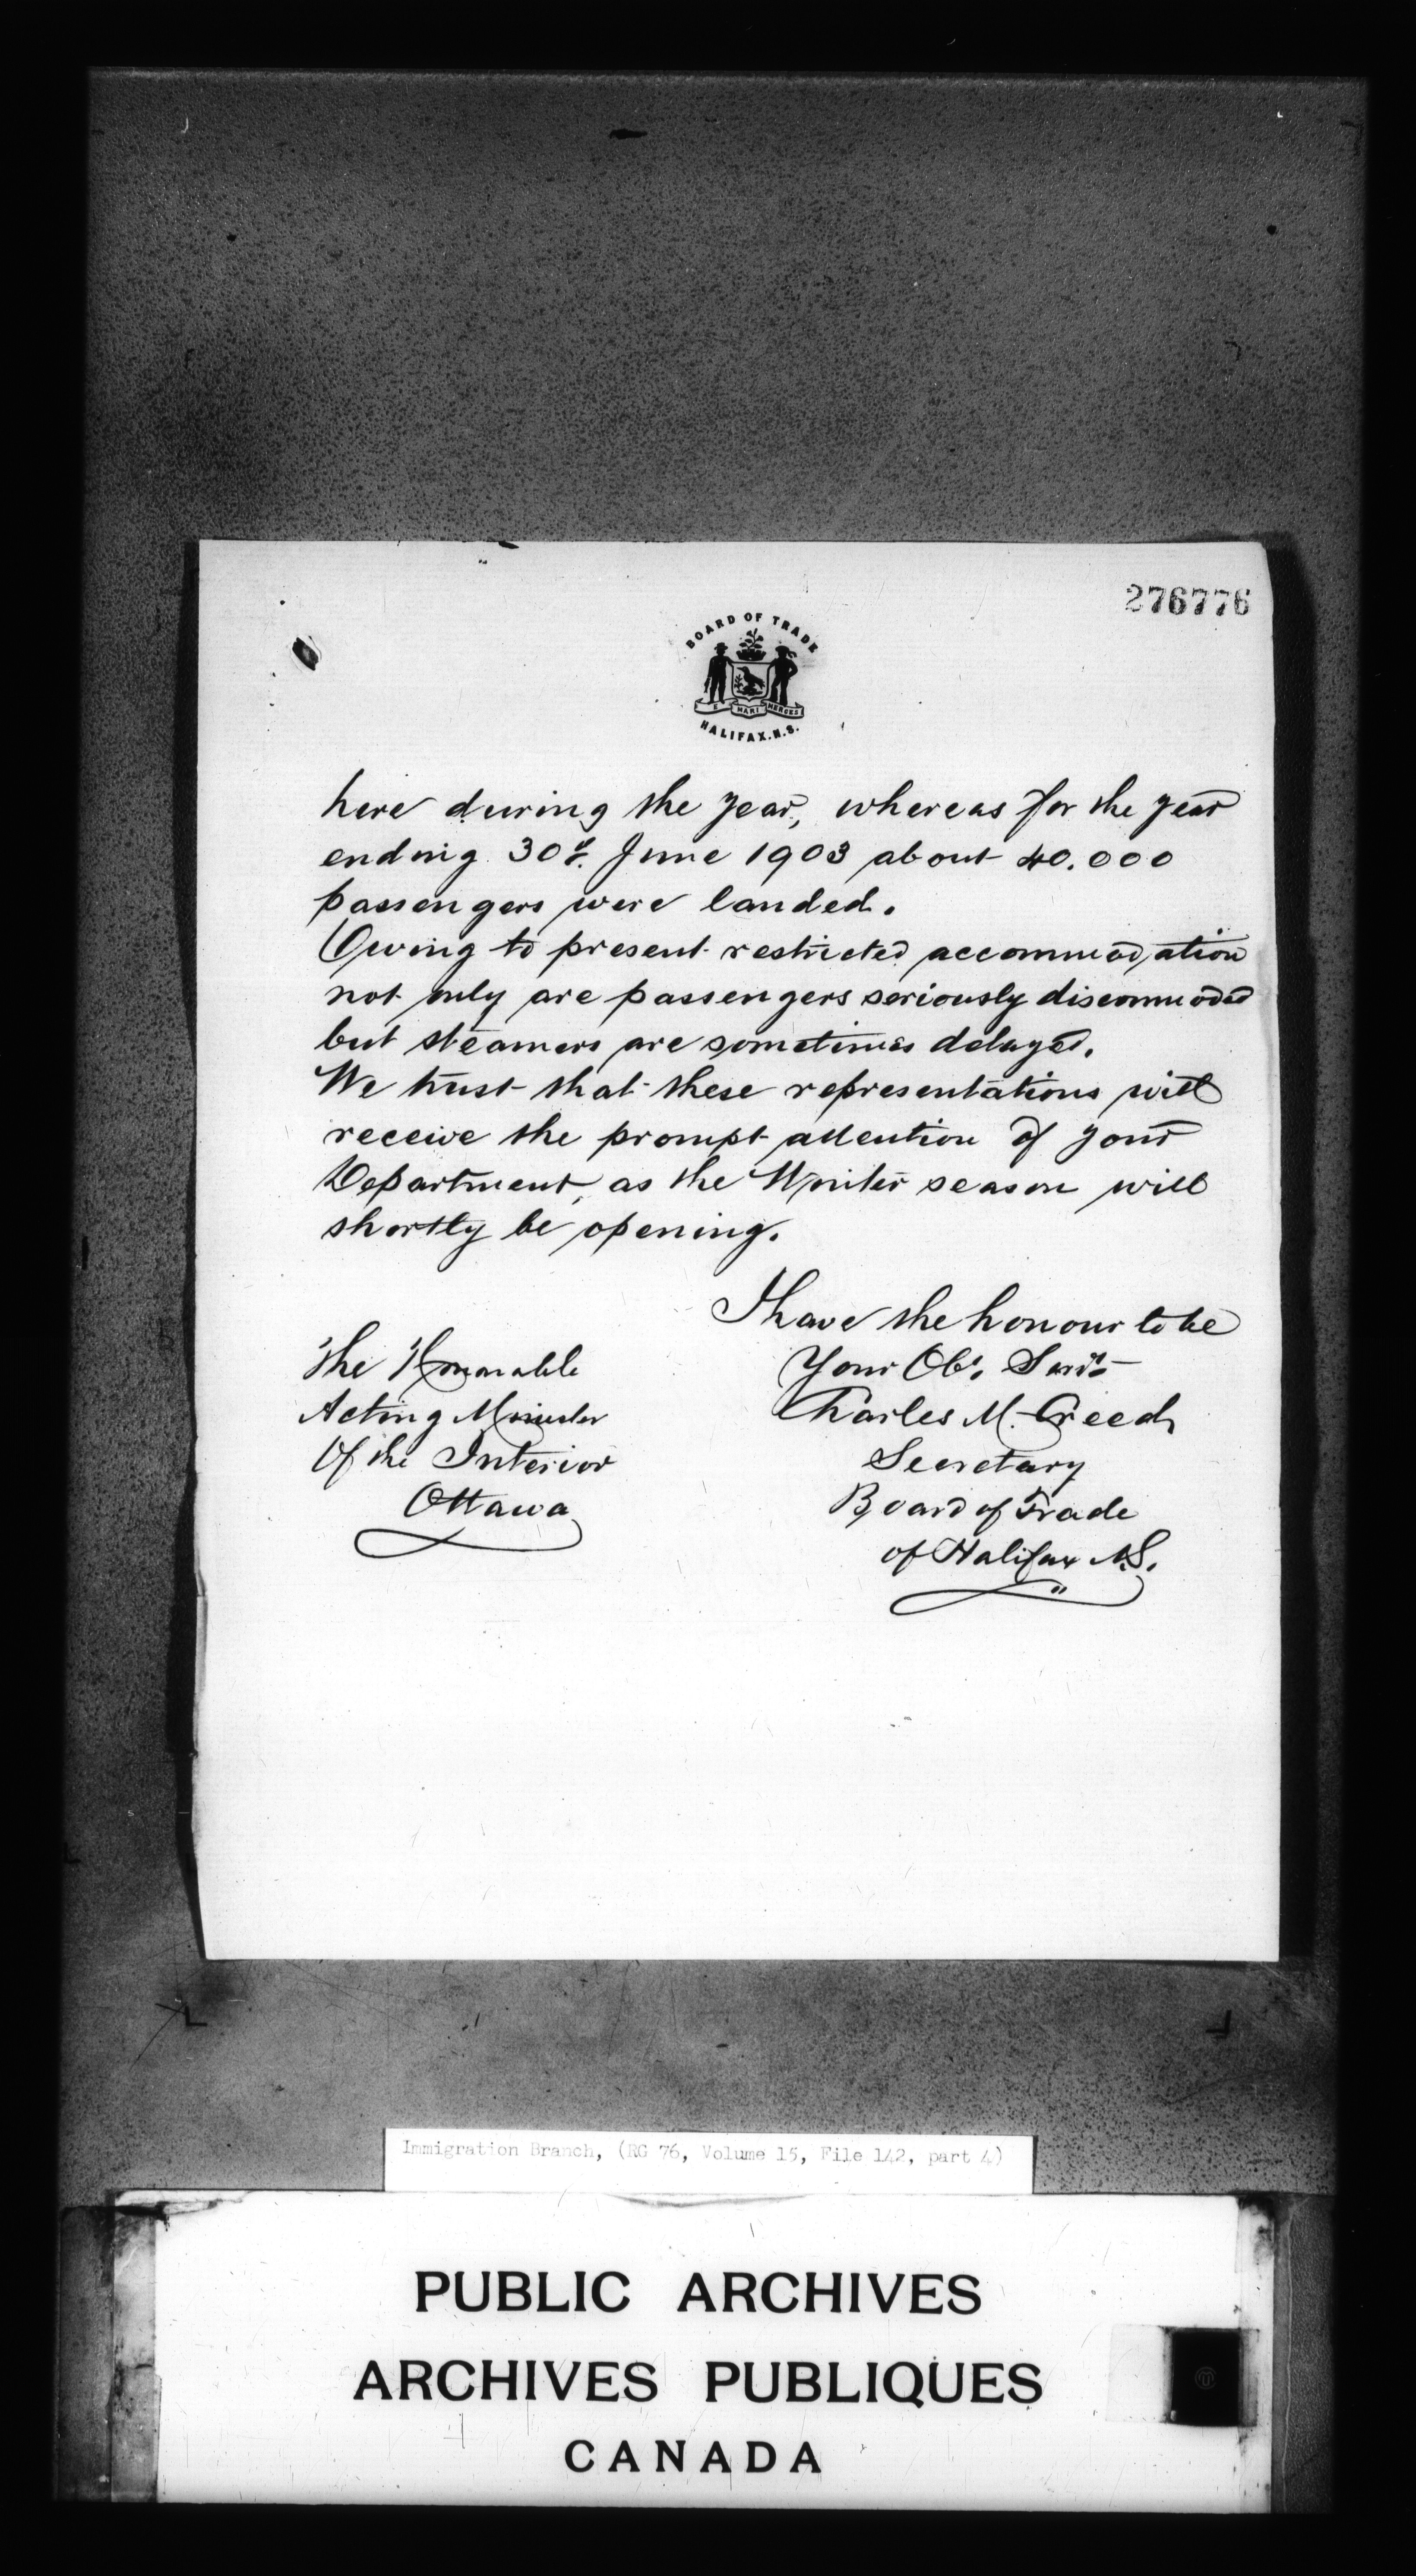 276776
BOARD OF TRADE
E MARI MERCES
HALIFAX. N.S.
here during the year, whereas for the year
ending 30th. June 1903 about 40.000
passengers were landed.
Owing to present restricted accommodation
not only are passengers seriously discommoded
but steamers are sometimes delayed.
We trust that these representations will
receive the prompt attention of your
Department, as the Winter season will
shortly be opening.
I have the honour to be
Your Obt. Servt.
Charles M. Creed
Secretary
Board of Trade
of Halifax N.S.
The Honorable
Acting Minister
Of the Interior
Ottawa
Immigration Branch, (RG 76, Volume 15, File 142, part 4)
PUBLIC ARCHIVES
ARCHIVES PUBLIQUES
CANADA